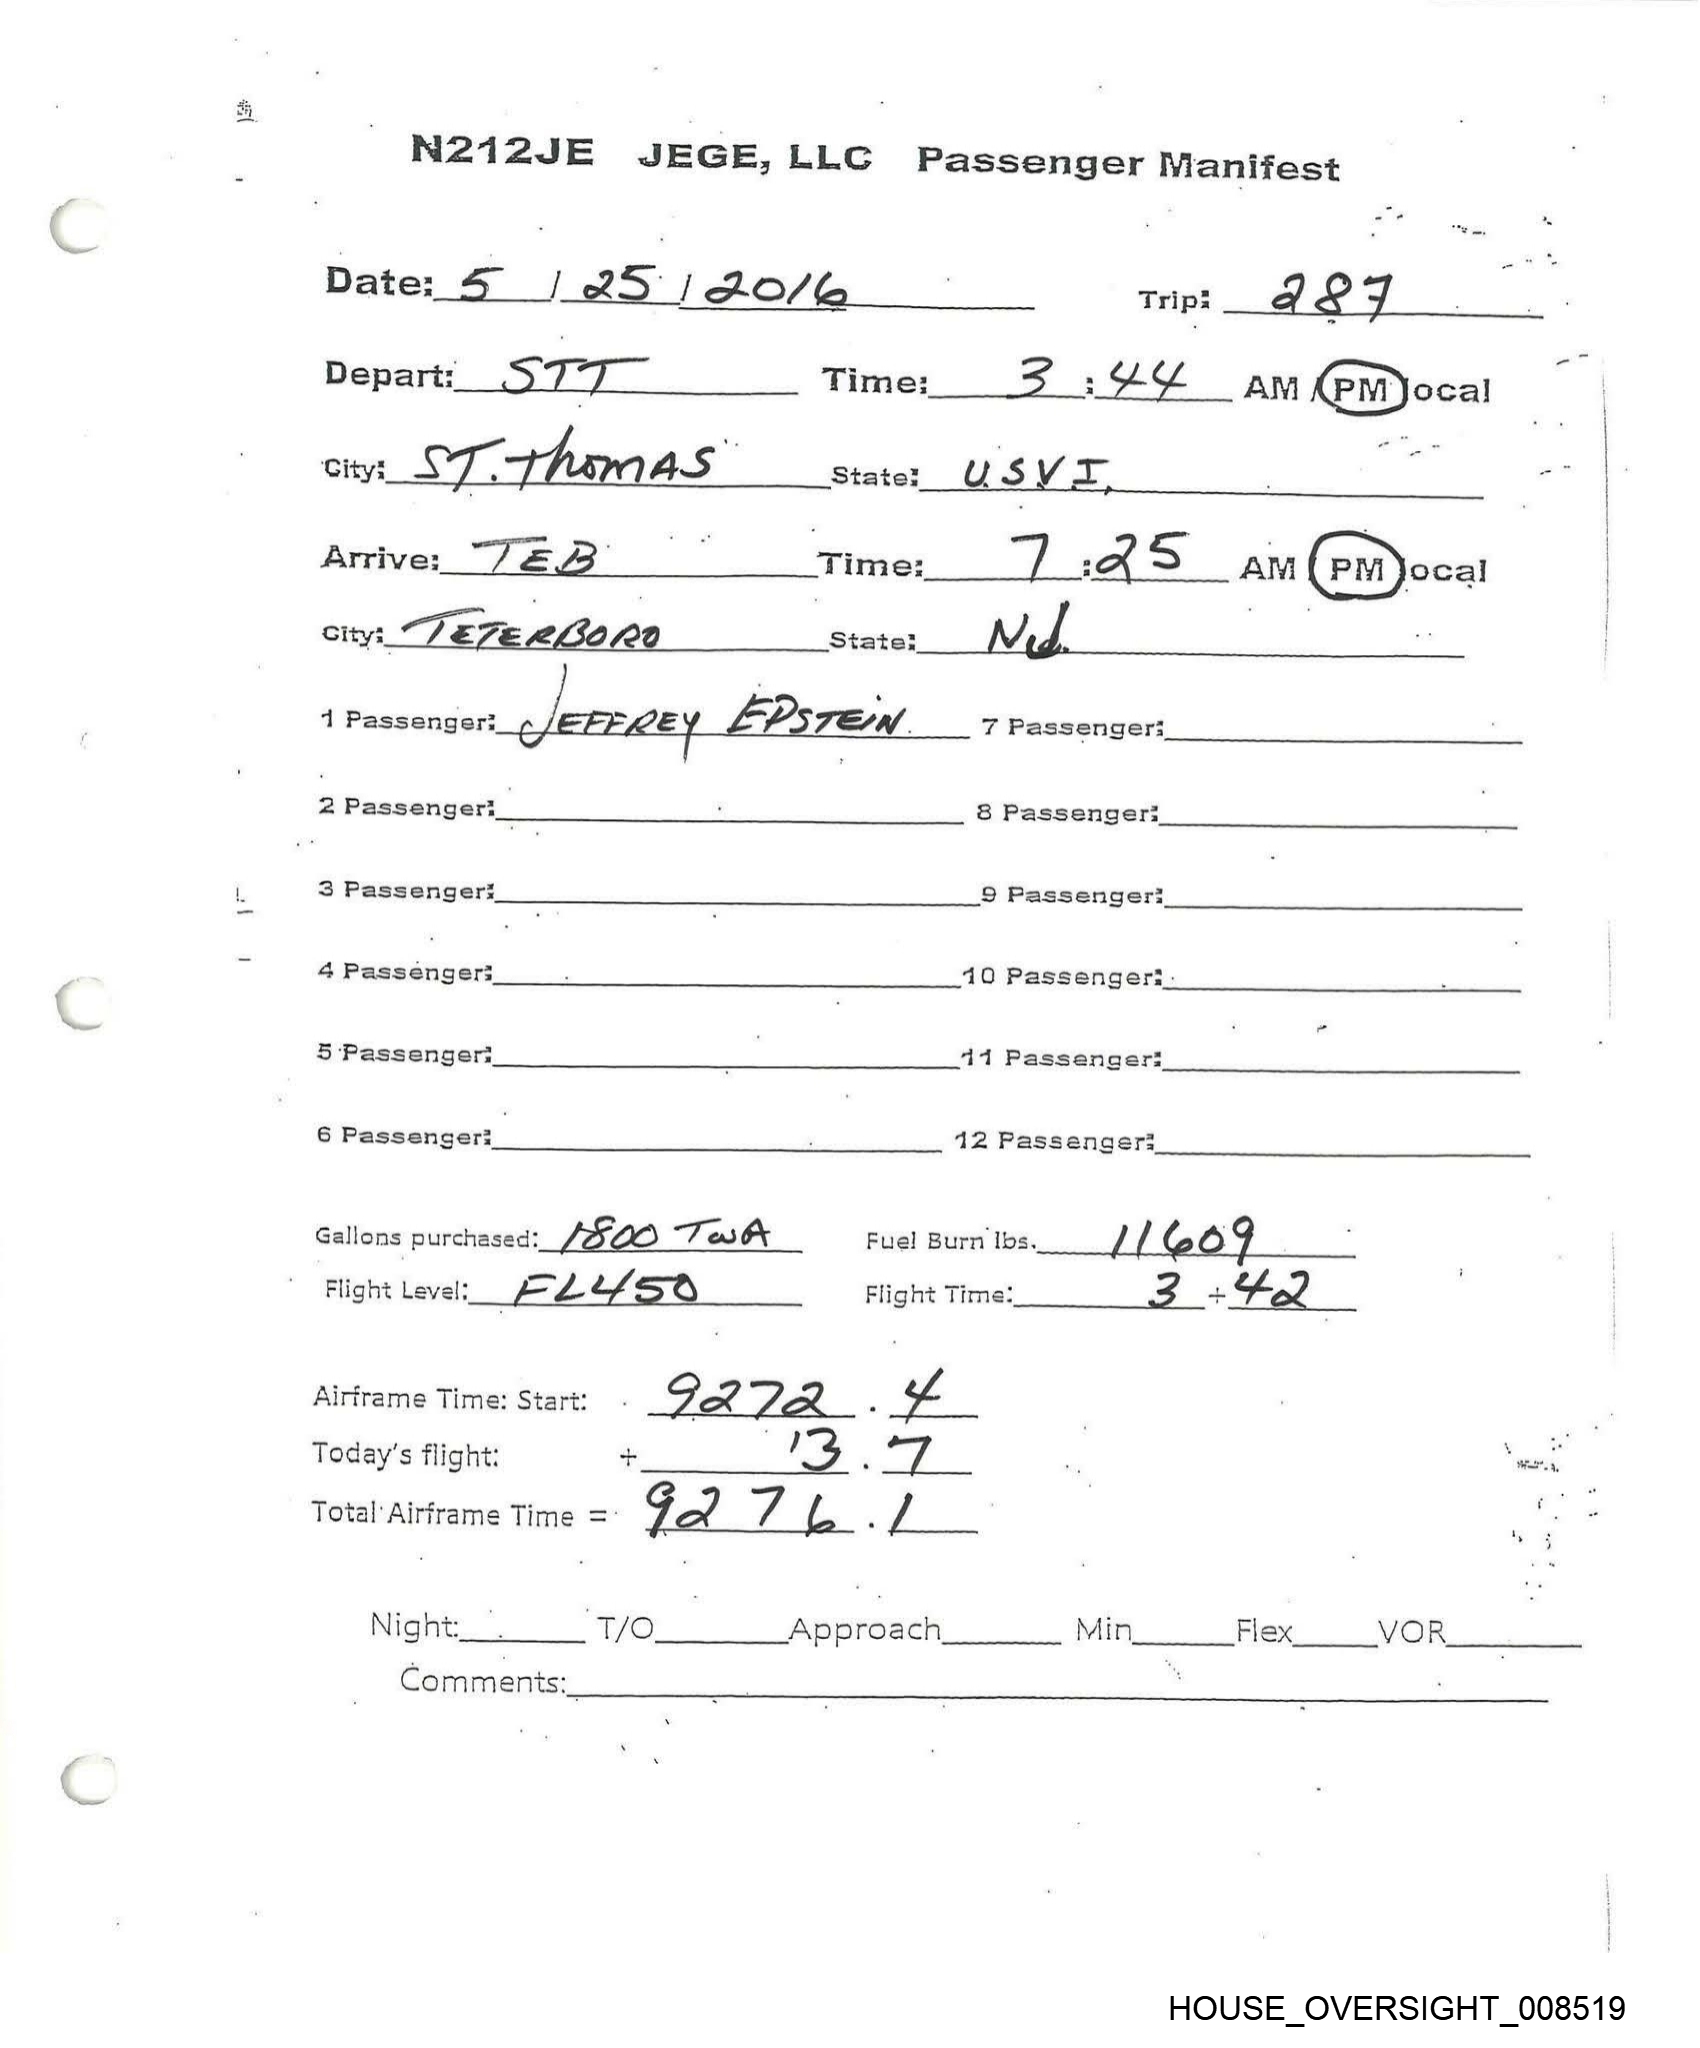 N212JE JEGE, LLC Passenger Manifest
Date: 5 / 25 / 2016 Trip: 287
Depart: STT Time: 3 : 44 AM / PM local
City: ST. Thomas State: U.S.V.I.
Arrive: TEB Time: 7 : 25 AM / PM local
City: TETERBORO State: N.J.
1 Passenger: JEFFREY EPSTEIN 7 Passenger:
2 Passenger: 8 Passenger:
3 Passenger: 9 Passenger:
4 Passenger: 10 Passenger:
5 Passenger: 11 Passenger:
6 Passenger: 12 Passenger:
Gallons purchased: 1800 TWA Fuel Burn lbs. 11609
Flight Level: FL450 Flight Time: 3 + 42
Airframe Time: Start: 9272 . 4
Today's flight: + 3 . 7
Total Airframe Time = 9276 . 1
Night: T/O Approach Min Flex VOR
Comments:
HOUSE_OVERSIGHT_008519